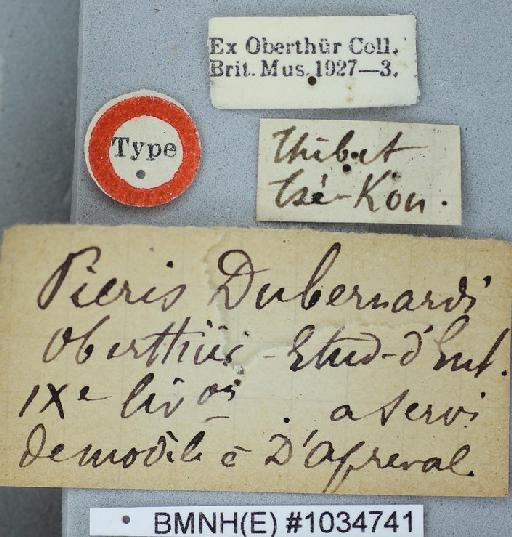 Ex Oberthür Coll.
Brit. Mus. 1927—3.
Type
Thibet
Tsé-Kou.
Pieris Dubernardi
Oberthür - Etud-d'Ent.
IXe livon . a servi
de modèle à D'Apreval
BMNH(E) #1034741